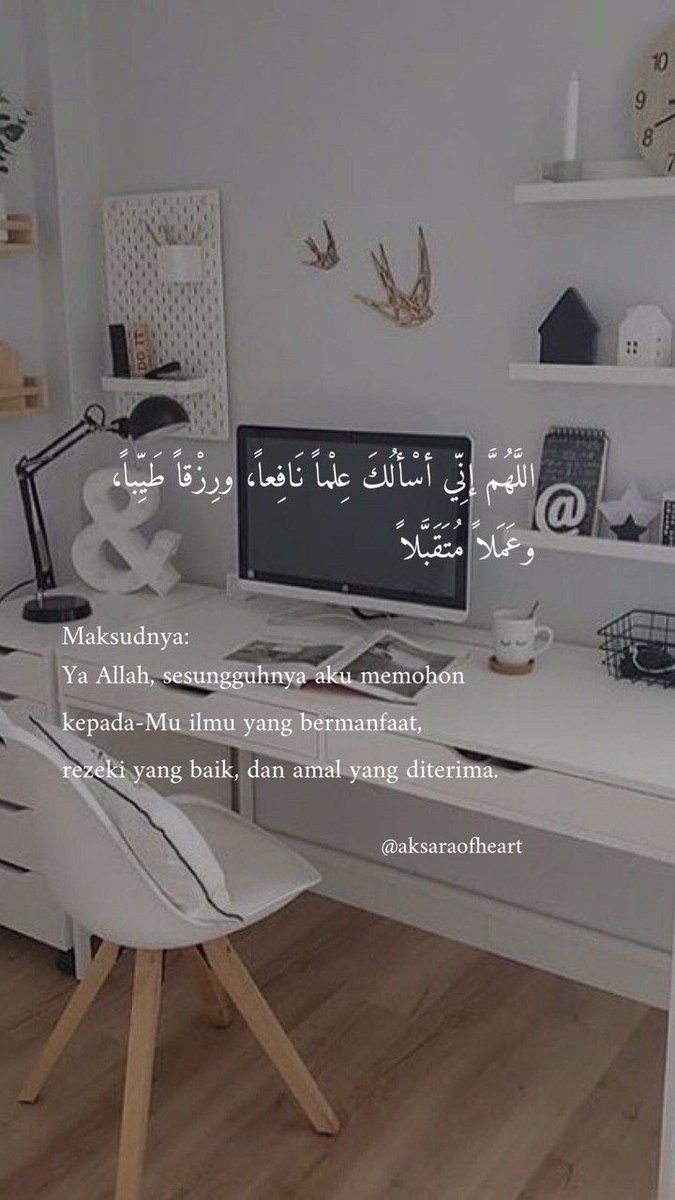 10
9
8
7
DO IT
&
@
اللَّهُمَّ إنِّي أسْألُكَ عِلْماً نَافِعاً، ورِزْقاً طَيِّباً،
وعَمَلاً مُتَقَبَّلاً
Maksudnya:
Ya Allah, sesungguhnya aku memohon
kepada-Mu ilmu yang bermanfaat,
rezeki yang baik, dan amal yang diterima.
@aksaraofheart